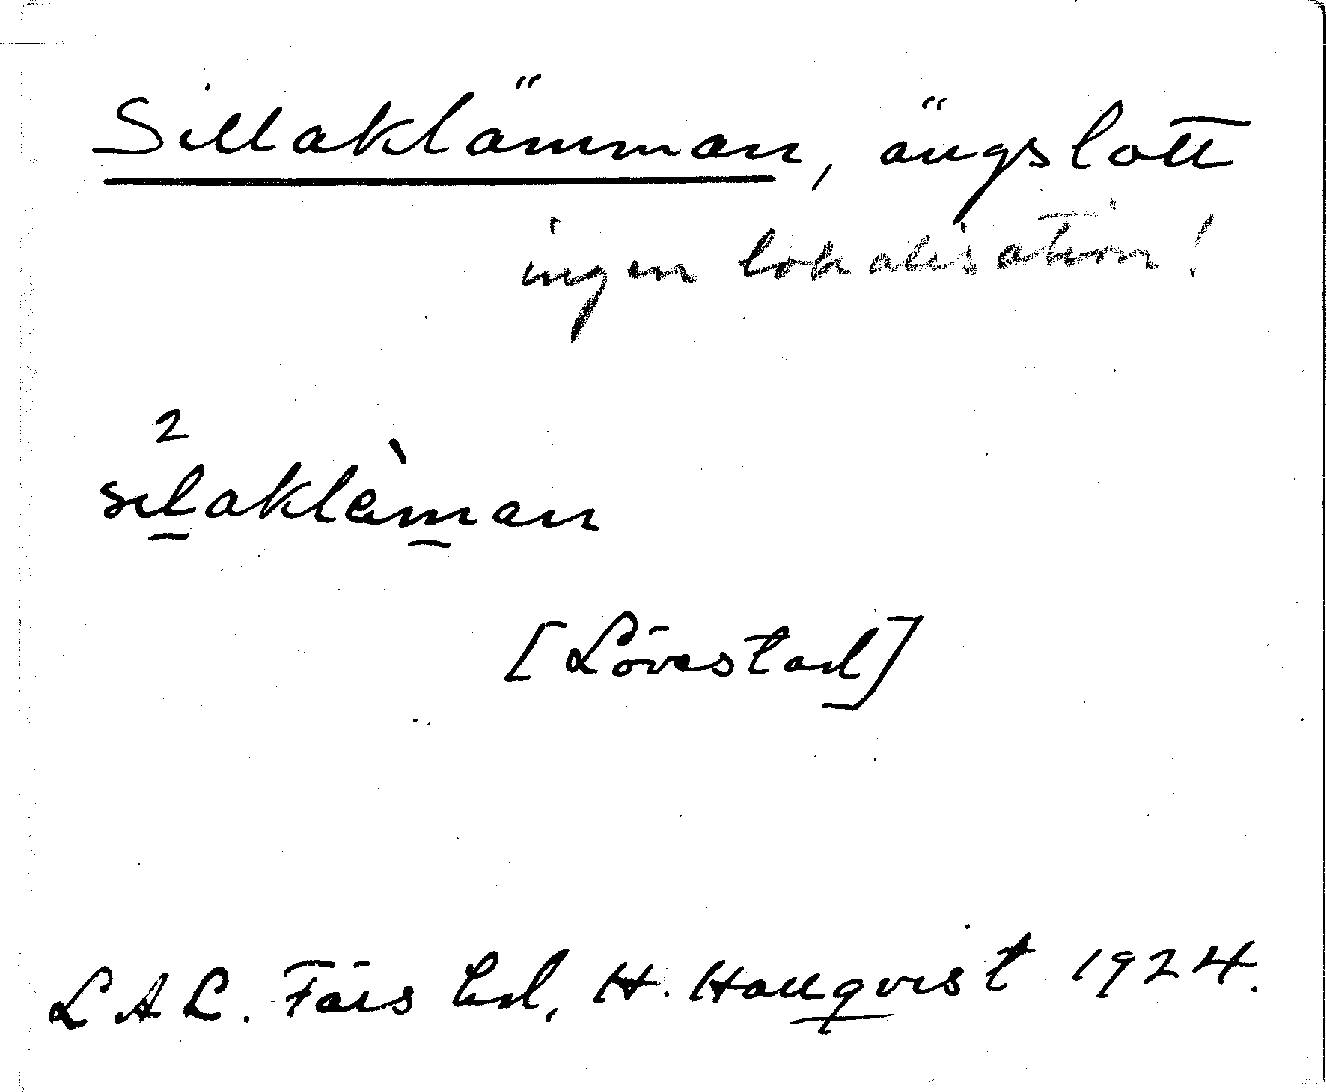 Sillaklämman, ängslott
ingen lokalisation!
2
silaklὰman
[Lövestad]
LAL. Färs hd, H. Hallqvist 1924.